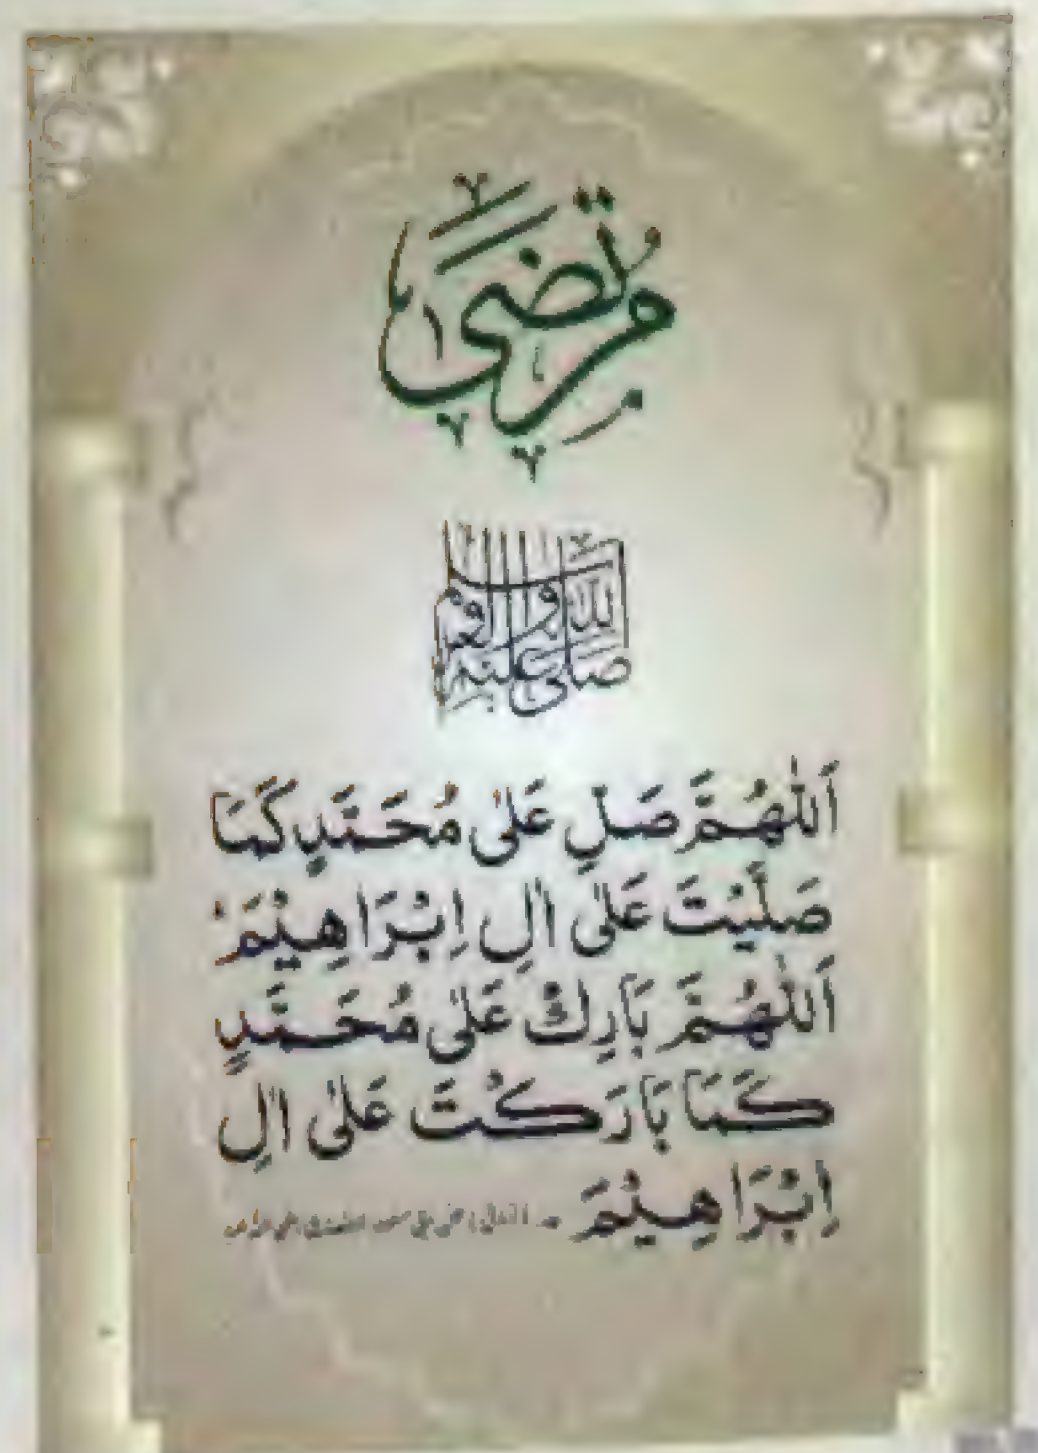 مرتضى
صلى الله عليه وآله وسلم
اَللّٰهُمَّ صَلِّ عَلٰی مُحَمَّدٍ کَمَا
صَلَّيْتَ عَلٰی اٰلِ اِبْرَاهِيْمَ
اَللّٰهُمَّ بَارِكْ عَلٰی مُحَمَّدٍ
كَمَا بَارَكْتَ عَلٰی اٰلِ
اِبْرَاهِيْمَ